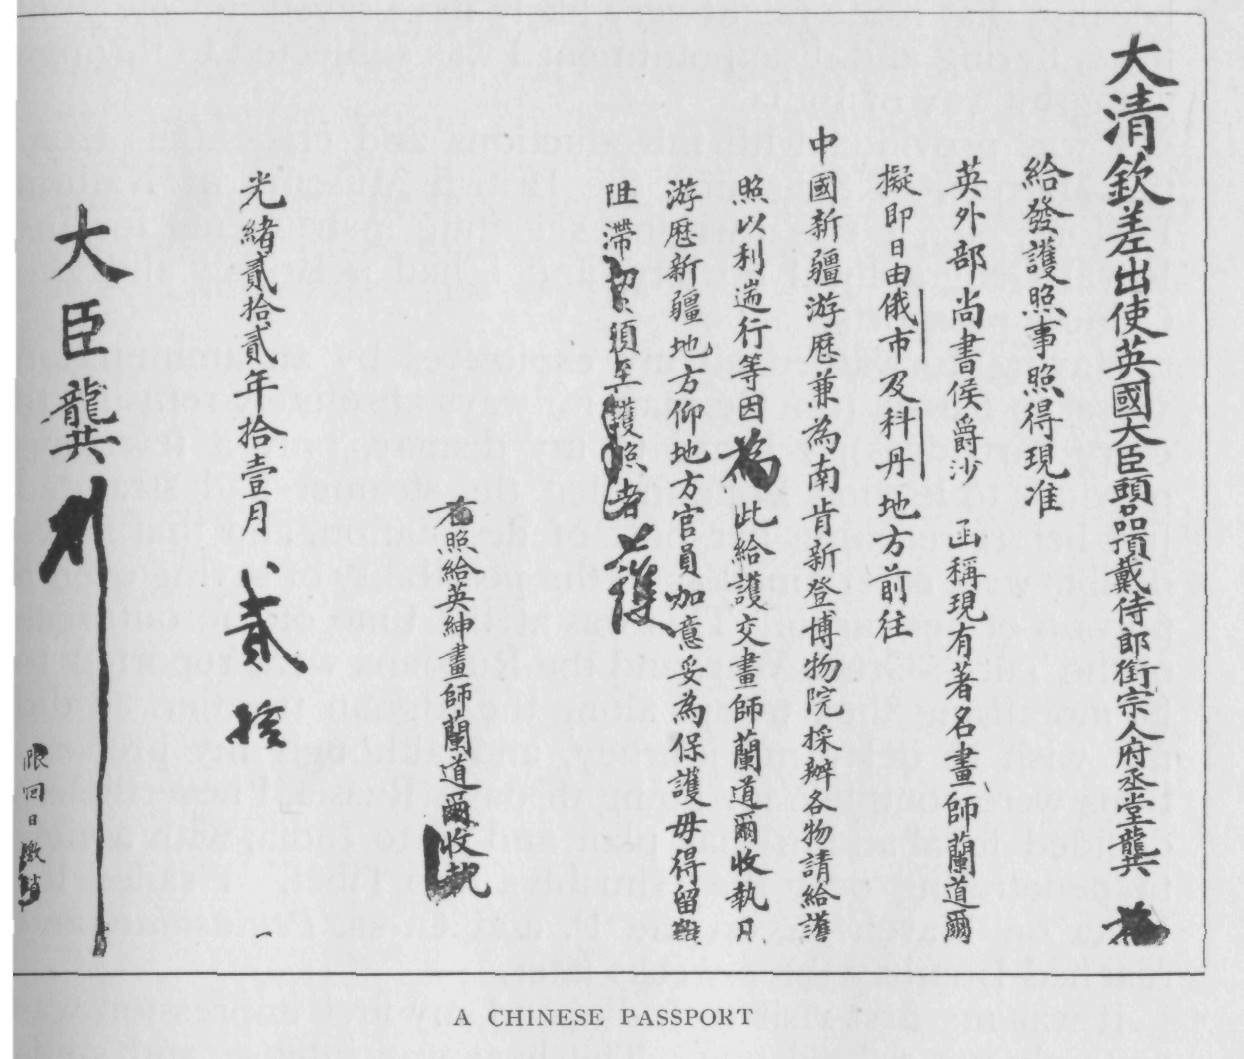 大清欽差出使英國大臣頭品頂戴侍郎銜宗人府丞堂龔 為
給發護照事照得現准
英外部尚書侯爵沙 函稱現有著名畫師蘭道爾
擬即日由俄市及科丹地方前往
中國新疆游歷兼為南肯新登博物院採辦各物請給護
照以利遄行等因為此給護交畫師蘭道爾收執凡
游歷新疆地方仰地方官員加意妥為保護毋得留難
阻滯切切須至護照者
護
右照給英紳畫師蘭道爾收執
光緒貳拾貳年拾壹月 貳拾
大臣龔
限回日繳銷
A CHINESE PASSPORT